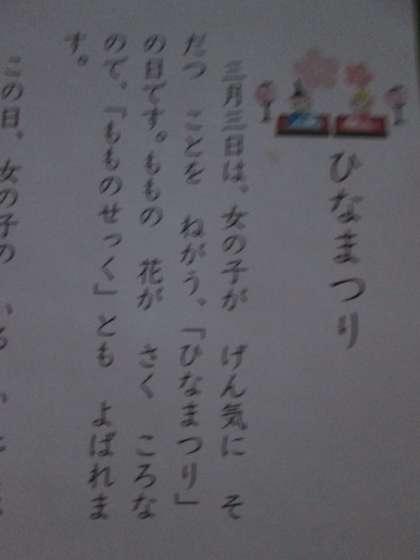 ひなまつり
三月三日は、女の子が げん気に そ
だつ ことを ねがう、「ひなまつり」
の日です。ももの 花が さく ころな
ので、「もものせっく」とも よばれま
す。
この日、女の子の